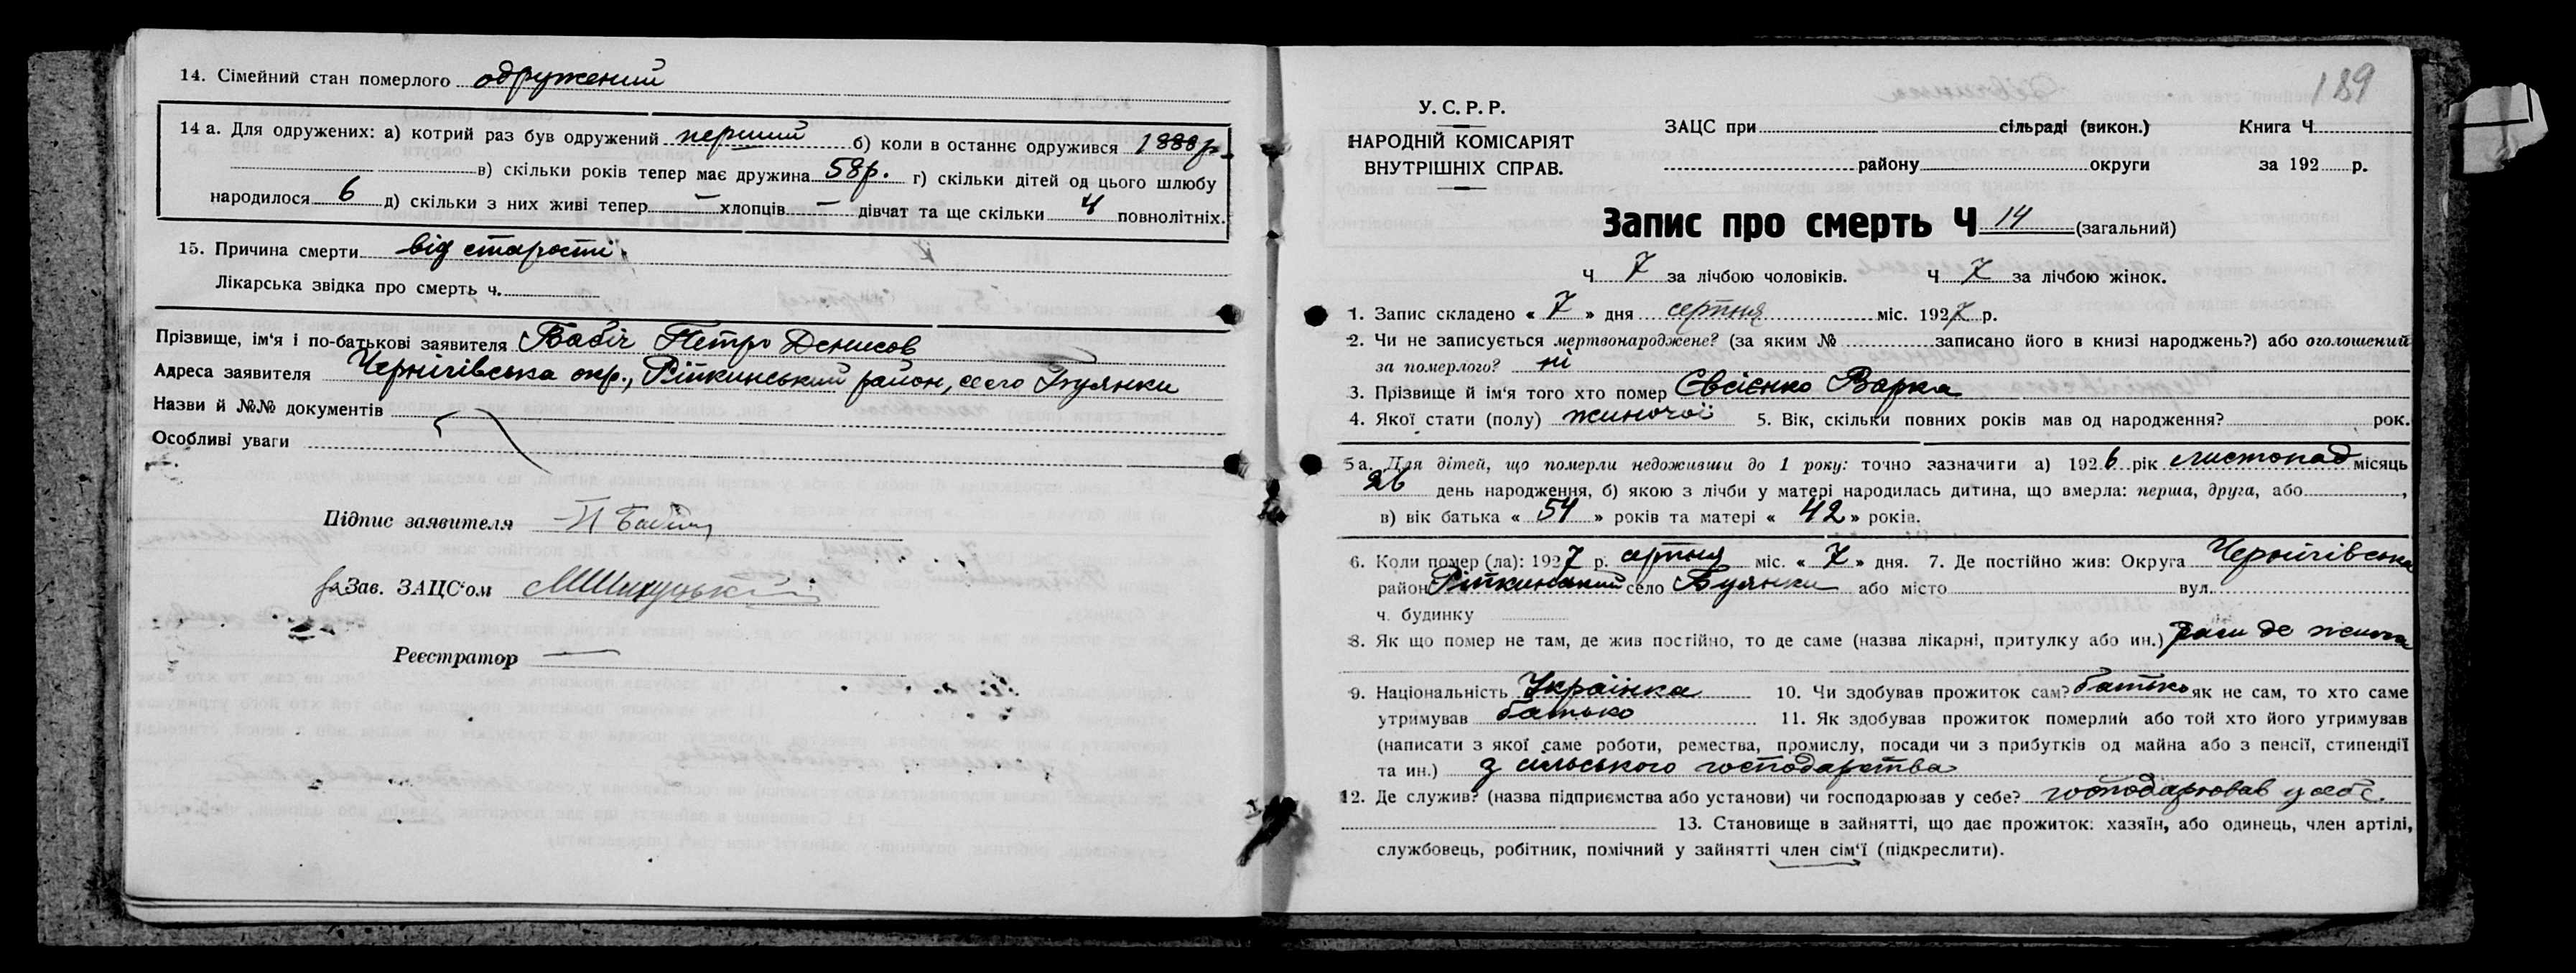 14. Сімейний стан померлого одружений
14 а. Для одружених: а) котрий раз був одружений перший б) коли в останнє одружився 1888 р.
в) скільки років тепер має дружина 58 р. г) скільки дітей од цього шлюбу
народилося 6 д) скільки з них живі тепер – хлопців – дівчат та ще скільки 4 повнолітніх.
15. Причина смерти від старости
Лікарська звідка про смерть ч.
Прізвище, ім'я і по-батькові заявителя Бабіч Петро Денисов
Адреса заявителя Чернігівська окр., Ріпкинський район, село Буянки
Назви й №№ документів
Особливі уваги
Підпис заявителя П Бабич
За Зав. ЗАЦС'ом
Реєстратор —
189
У. С. Р. Р.
НАРОДНІЙ КОМІСАРІЯТ
ВНУТРІШНІХ СПРАВ.
ЗАЦС при сільраді (викон.) Книга Ч
району округи за 192 р.
Запис про смерть Ч 14 (загальний)
Ч 7 за лічбою чоловіків. Ч 7 за лічбою жінок.
1. Запис складено « 7 » дня серпня міс. 1927 р.
2. Чи не записується мертвонароджене? (за яким № записано його в книзі народжень?) або оголошений
за померлого? ні
3. Прізвище й ім'я того хто помер Євсієнко Варка
4. Якої стати (полу) жиночої 5. Вік, скільки повних років мав од народження? рок.
5 а. Для дітей, що померли недоживши до 1 року: точно зазначити а) 1926 рік листопад місяць
26 день народження, б) якою з лічби у матері народилась дитина, що вмерла: перша, друга, або ,
в) вік батька « 54 » років та матері « 42 » років.
6. Коли помер (ла): 1927 р. серпня міс. « 7 » дня. 7. Де постійно жив: Округа Чернігівська
район Ріпкинський село Буянки або місто вул.
ч. будинку
8. Як що помер не там, де жив постійно, то де саме (назва лікарні, притулку або ин.) там де жила
9. Національність Українка 10. Чи здобував прожиток сам? батько як не сам, то хто саме
утримував батько 11. Як здобував прожиток померлий або той хто його утримував
(написати з якої саме роботи, ремества, промислу, посади чи з прибутків од майна або з пенсії, стипендії
та ин.) з сільського господарства
12. Де служив? (назва підприємства або установи) чи господарював у себе? господарював у себе.
13. Становище в зайнятті, що дає прожиток: хазяїн, або одинець, член артілі,
службовець, робітник, помічний у зайнятті член сім'ї (підкреслити).